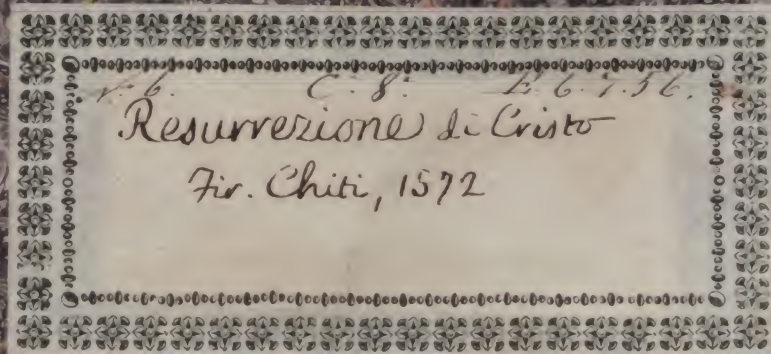 C. 8. E. 6. 7. 56.
Resurrezione di Cristo
Fir. Chiti, 1572